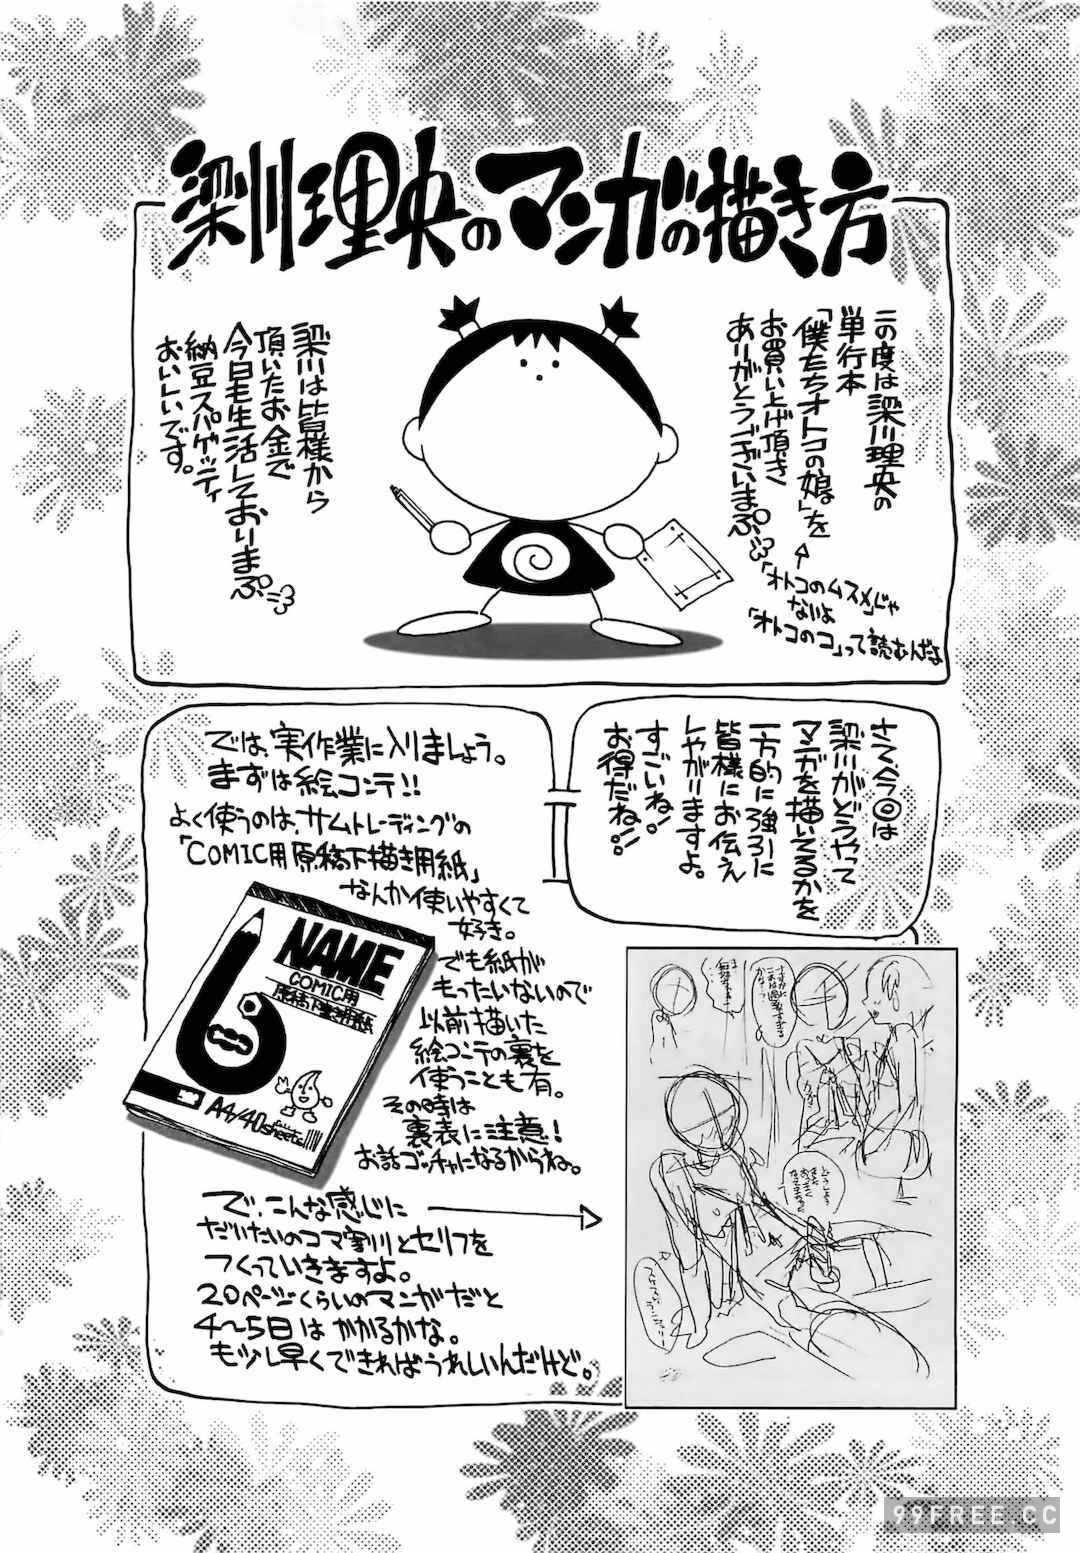 梁川理央のマンガの描き方
この度は梁川理央の
単行本
「僕たちオトコの娘」を
お買い上げ頂き
ありがとうございまぷ
「オトコのムスメ」じゃ
ないよ
「オトコのコ」って読むんだよ
梁川は皆様から
頂いたお金で
今日も生活しておりまぷ
納豆スパゲッティ
おいしいです。
さて今回は
梁川がどうやって
マンガを描いてるかを
一方的に強引に
皆様にお伝え
しやがりますよ。
すごいね!
お得だね!!
では、実作業に入りましょう。
まずは絵コンテ!!
よく使うのは、サムトレーディングの
「COMIC用原稿下描き用紙」
なんか使いやすくて
好き。
でも紙が
もったいないので
以前描いた
絵コンテの裏を
使うことも有。
その時は
裏表に注意!
お話ゴッチャになるからね。
NAME
COMIC用
原稿下書き用紙
A4/40sheets
で、こんな感じに
だいたいのコマ割りとセリフを
つくっていきますよ。
20ページくらいのマンガだと
4〜5日はかかるかな。
もう少し早くできればうれしいんだけど。
99FREE.CC